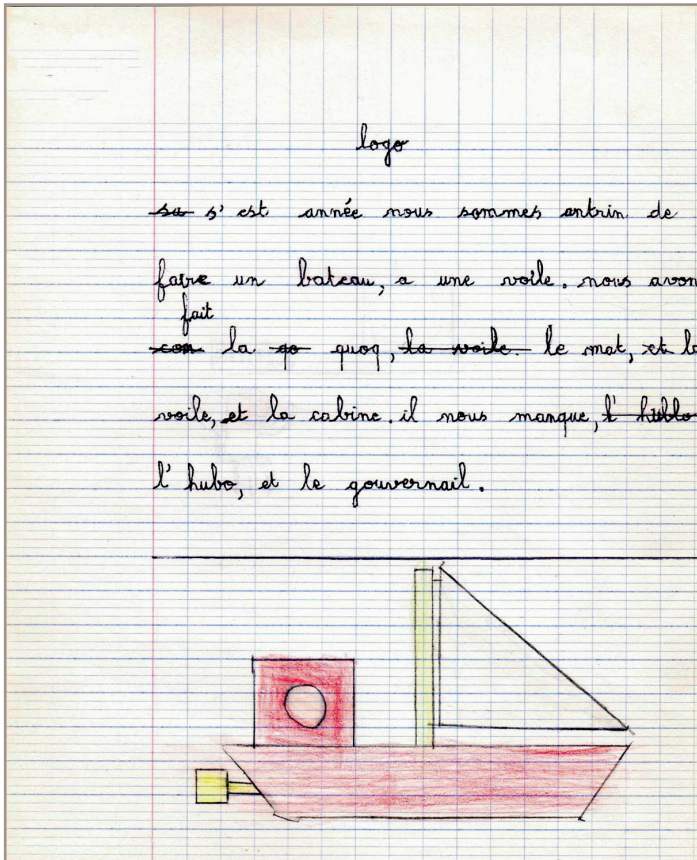 logo
sa s' est année nous sommes entrin de
faire un bateau, a une voile. nous avon
fait
con la qo quoq, la voile. le mat, et la
voile, et la cabine. il nous manque, l' hublo
l' hubo, et le gouvernail.